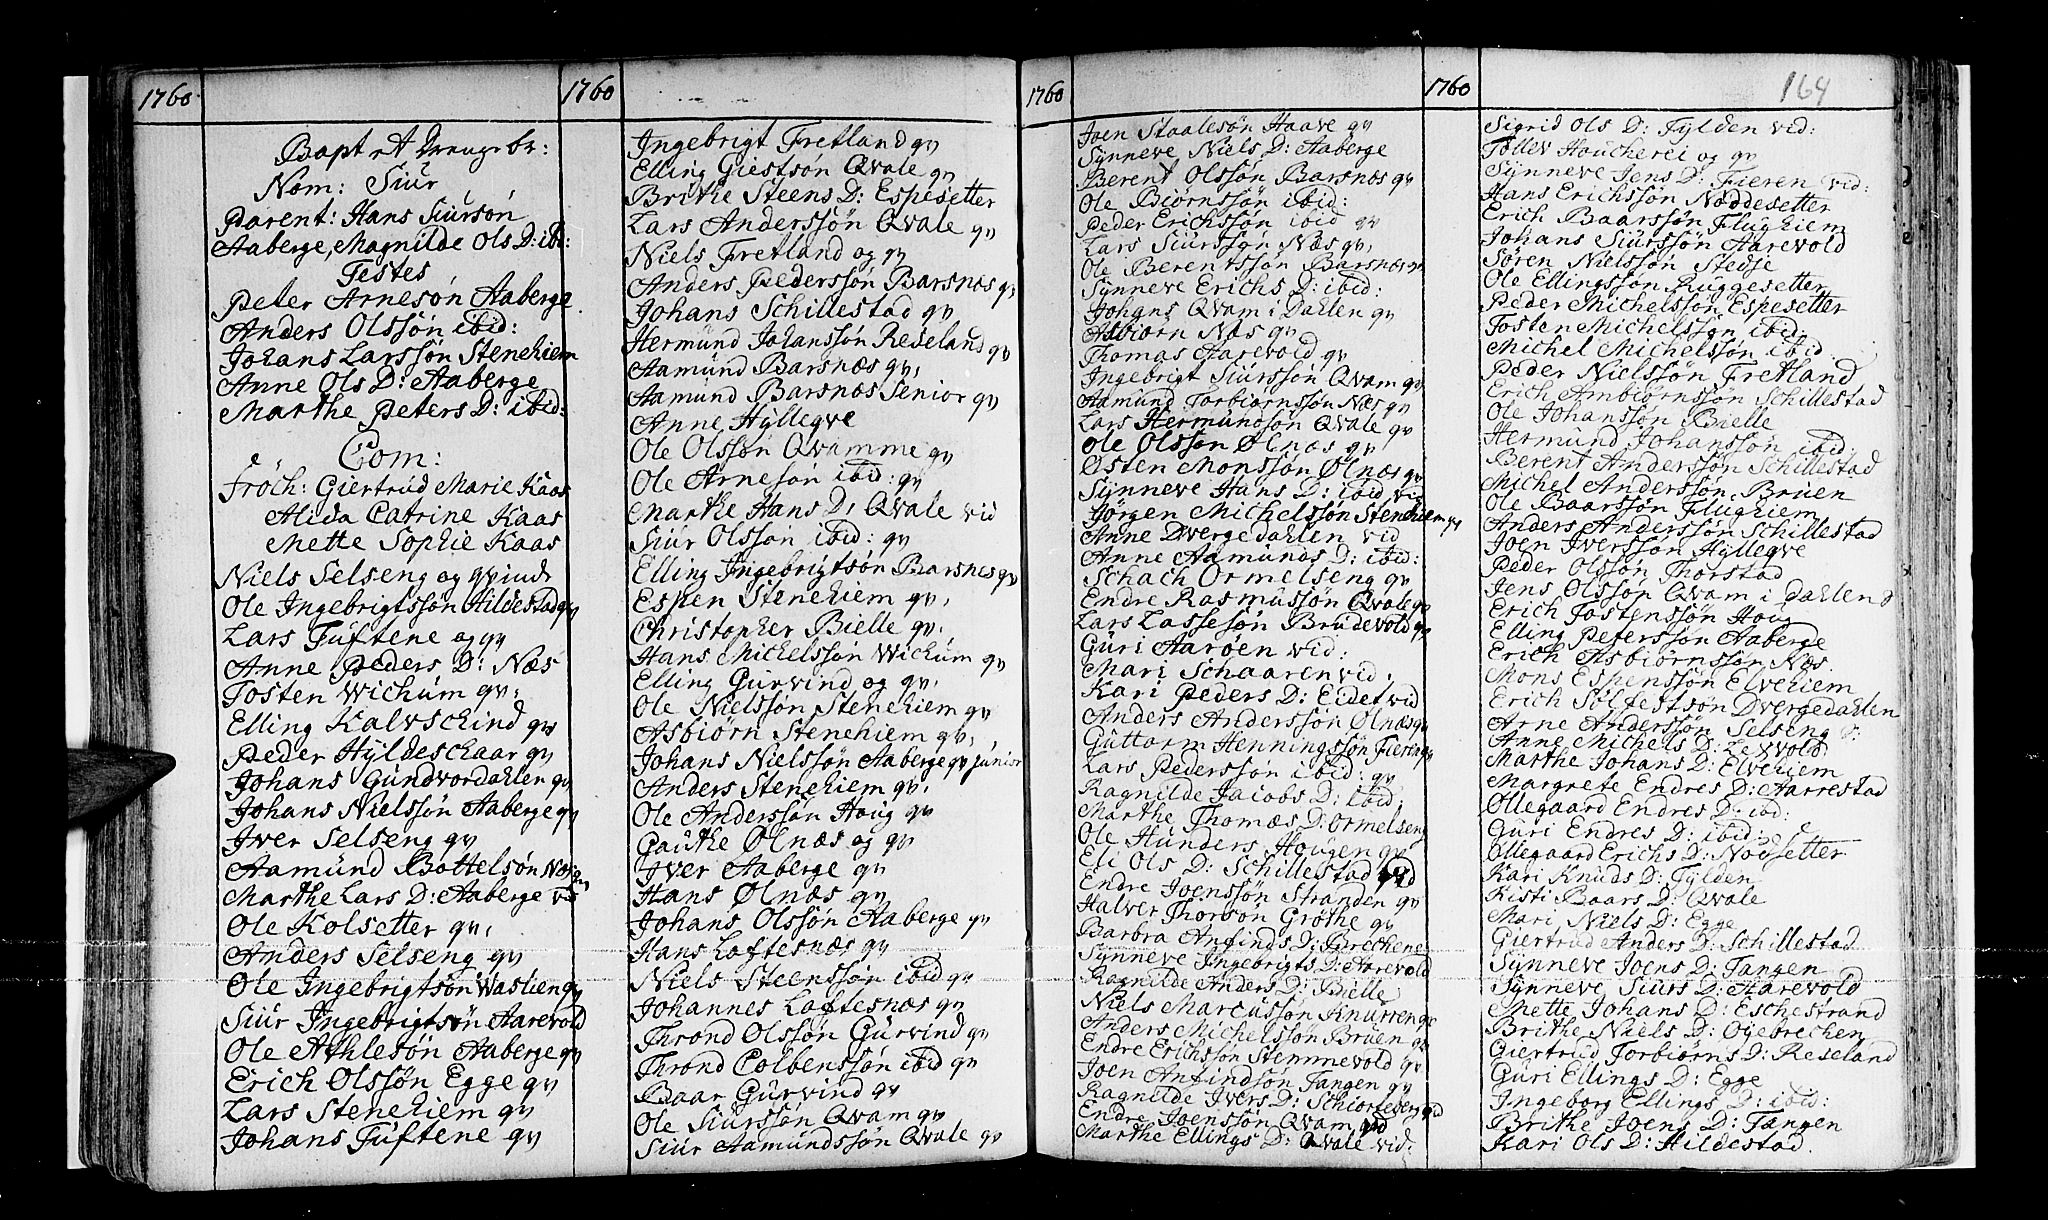 1760
Bapt et Drengebr:
Nom: Siur
Parent: Hans Siursøn
Aaberge, Magnilde Ols D: ibi:
Testes
Peter Arnesøn Aaberge
Anders Olssøn ibid:
Johans Larssøn Stenehiem
Anne Ols D: Aaberge
Marthe Peters D: ibid:
Com:
Frøch: Giertrud Marie Kaas
Alida Catrine Kaas
Mette Sophie Kaas
Niels Selseng og qvinde
Ole Ingebrigtssøn Hildestad qv
Lars Tuftene og qv
Anne Peders D: Næs
Tosten Wichum qv:
Elling Kalvschind qv
Peder Hyldeschaar qv
Johans Gundvordahlen qv
Johans Nielssøn Aaberge qv
Iver Selseng qv
Aamund Bottelsøn Næs qv
Marthe Lars D: Aaberge vid
Ole Kolsetter qv:
Anders Selseng qv
Ole Ingebrigtsøn Waslien qv
Siur Ingebrigtsøn Aarevold
Ole Athlesøn Aaberge qv
Erich Olssøn Egge qv
Lars Stenehiem qv
Johans Tuftene qv
1760
Ingebrigt Fretland qv
Elling Giestsøn Qvale qv
Brithe Steens D: Espesetter
Lars Anderssøn Qvale qv
Niels Fretland og qv
Anders Pederssøn Barsnæs qv
Johans Schillestad qv
Hermund Johanssøn Reseland qv
Aamund Barsnæs qv,
Aamund Barsnæs Senior qv
Anne Hyllegve
Ole Olssøn Qvamme qv
Ole Arnesøn ibid: qv
Marthe Hans D: Qvale vid
Siur Olsson ibid: qv
Elling Ingebrigtsøn Barsnes qv
Espen Stenehiem qv,
Christopher Bielle qv,
Hans Michelssøn Wichum qv
Elling Gurvind og qv,
Ole Nielssøn Stenehiem qv
Asbiørn Stenehiem qv,
Johans Nielssøn Aaberge qv junior
Anders Stenehiem qv,
Ole Anderssøn Houg qv
Gauthe Ølnæs og qv
Iver Aaberge qv
Hans Ølnæs qv
Johans Olssøn Aaberge qv
Hans Loftesnæs qv
Niels Steenssøn ibid qv
Johannes Loftesnæs qv
Thrond Olssøn Gurvind qv
Thrond Colbenssøn ibid qv
Baar Gurvind qv
Ole Siurssøn Qvam qv
Siur Aamundssøn Qvale qv
1760
Joen Staalesøn Haave qv
Synneve Niels D: Aaberge
Berent Olssøn Barsnæs qv
Ole Biørnssøn ibid:
Peder Erichssøn ibid qv
Lars Siurssøn Næs qv,
Ole Berentssøn Barsnæs qv
Synneve Erichs D: ibid:
Johans Qvam i Dahlen qv
Asbiørn Næs qv
Thomas Aarevold qv
Ingebrigt Siurssøn Qvam qv
Aamund Torbiørnssøn Næs qv
Lars Hermundsøn Qvale qv
Ole Olsson Ølnæs qv,
Østen Monssøn Ølnæs qv
Synneve Hans D: ibid vid
Jørgen Michelssøn Stenehiem qv
Anne Dvergedahlen vid
Anne Aamunds D: ibid:
Schach Ormelseng qv
Endre Rasmussøn Qvale qv
Lars Lassesøn Brudevold qv
Guri Aarøen vid:
Mari Schaaren vid.
Kari Peders D: Eidet vid
Anders Anderssøn Ølnæs qv
Guttorm Henningssøn Fieren qv
Lars Pederssøn ibid: qv
Ragnilde Jacobs D: ibid,
Marthe Thomæs D: Ormelseng
Ole Hunders Hougen qv
Eli Ols D: Schillestad vid
Endre Joenssøn Stranden qv
Halver Thorsøn Grøthe qv
Barbra Anfinds D: Brechene
Synneve Ingebrigts D: Aarevold
Ragnilde Anders D: Bielle
Niels Marcussøn Knurren qv
Anders Michelssøn Bruen qv
Endre Erichsøn Stemmevold qv
Joen Anfindsøn Tangen qv
Ragnilde Ivers D: Schiorleberg vid
Endre Joenssøn Qvam vid
Marthe Ellings D: Qvale vid:
1760
164
Sigrid Ols D: Fylden vid:
Tollev Houcherei og qv
Synneve Jens D: Fieren vid:
Hans Erichssøn Noddesetter
Erich Baarssøn Flughiem
Johans Siurssøn Aarevold
Søren Nielssøn Stedje
Ole Ellingssøn Ruggesetter
Peder Michelssøn Espesetter
Tosten Michelssøn ibid:
Michel Michelssøn ibid
Peder Nielssøn Fretland
Erich Ambiørnssøn Schillestad
Ole Johanssøn Bielle
Hermund Johanssøn ibid:
Berent Anderssøn Schillestad
Michel Anderssøn Bruen
Ole Baarssøn Flughiem
Anders Anderssøn Schillestad
Joen Iverssøn Hyllegve
Peder Olssøn Thorstad
Jens Olsson Qvam i Dahlen
Erich Tostenssøn Houg
Elling Peterssøn Aaberge
Erich Asbiørnssøn Næs.
Mons Espenssøn Elvehiem
Erich Sølfestsøn Dvergedahlen
Arne Anderssøn Selseng
Anne Michels D: Levold
Marthe Johans D: Elvehiem
Margrete Endres D: Aarrestad
Øllegaard Endres D: ibid:
Guri Endres D: ibid:
Øllegaard Erichs D: Nodsetter
Kari Knuds D: Fylden
Kisti Baars D: Qvale
Mari Niels D: Egge
Giertrud Anders D: Schillestad
Synneve Joens D: Tangen
Synneve Siurs D: Aarevold
Mette Johans D: Eschestrand
Brithe Niels D: Ogebrechen
Giertrud Torbiørns D: Reseland
Guri Ellings D: Egge
Ingeborg Ellings D: ibid:
Brithe Joens D: Tangen
Kari Ols D: Hildestad.